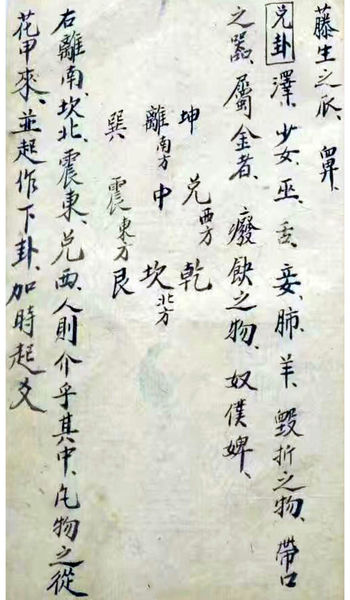 藤生之瓜、鼻、
兌卦 澤、少女、巫、舌、妾、肺、羊、毀折之物、帶口
之器、屬金者、癈缺之物、奴僕婢、
坤 兌西方 乾
離南方 中 坎北方
巽 震東方 艮
右離南、坎北、震東、兌西、人則介乎其中、凡物之從
花甲來、並起作下卦、加時起爻